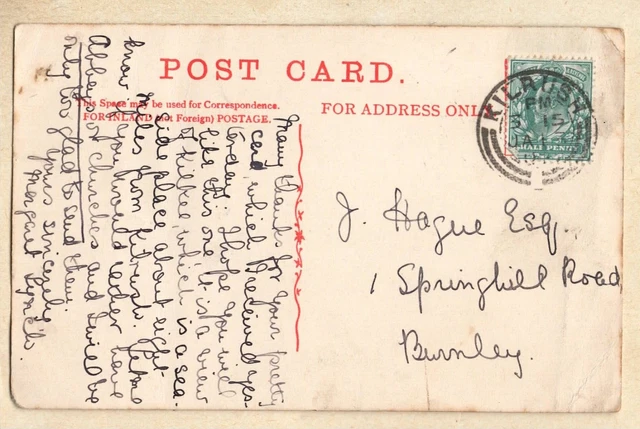 POST CARD.
This Space may be used for Correspondence.
FOR INLAND (not Foreign) POSTAGE.
FOR ADDRESS ONL
KILRUSH
PM
15
JA
HALF PENNY
J. Hague Esq.,
1 Springhill Road
Burnley.
Many thanks for your pretty
card, which I received yes-
terday. I hope you will
like this one. It is a view
of Kilkee, which is a sea-
side place about eight
miles from Kilrush. Let me
know if you would rather have
Abbeys or churches and I will be
only too glad to send them.
Yours sincerely
Margaret Lynch.